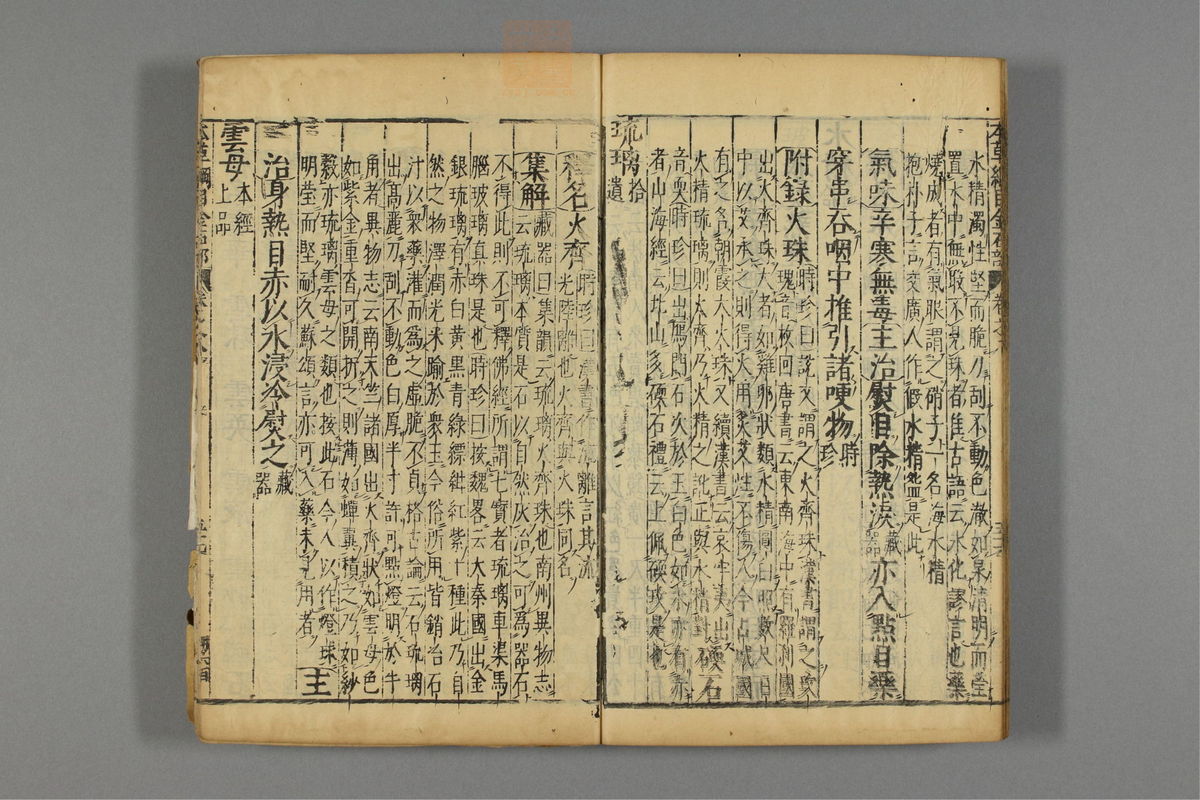 水精濁性堅而脆刀刮不動色澈如泉清明而瑩
置水中無瑕不見珠者佳古語云水化謬言也藥
燒成者有氣眼謂之硝子一名海水精
抱朴子言交廣人作假水精盌是此
氣味辛寒無毒主治熨目除熱淚藏器亦入點目藥
穿串吞咽中推引諸哽物時珍
附錄火珠時珍曰說文謂之火齊珠漢書謂之
瑰音枚回唐書云東南海中有羅刹國
出火齊珠大者如雞卵狀類水精圓白照數尺日
中以艾承之則得火用灸艾性不傷人今占城國
有之名朝霞大火珠又續漢書云哀牢夷出
火精琉璃則火齊乃火精之訛正與水精對 硬石
音耎時珍曰出鴈門石次於玉白色如冰亦有赤
者山海經云北山多礝石禮云士佩礝玟是也
琉璃拾遺
釋名火齊時珍曰漢書作 離言其流
光陸離也火齊與火珠同名
集解藏器曰集韻云琉璃火齊珠也南州異物志
云琉璃本質是石以自然灰治之可爲器石
不得此則不可釋佛經所謂七寶者琉璃車渠馬
腦玻璃真珠是也時珍曰按魏畧云大秦國出金
銀琉璃有赤白黃黑青綠縹紺紅紫十種此乃自
然之物澤潤光采踰於衆玉今俗所用皆銷冶石
汁以衆藥灌而爲之虛脆不貞格古論云石琉璃
出高麗刀刮不動色白厚半寸許可點燈明於牛
角者異物志云南天竺諸國出火齊狀如雲母色
如紫金重沓可開折之則薄如蟬翼積之乃如紗
縠亦琉璃雲母之類也按此石今人以作燈珠
明堂而堅耐久蘇頌言亦可入藥未見用者 主
治身熱目赤以水浸冷熨之藏器
雲母本經上品